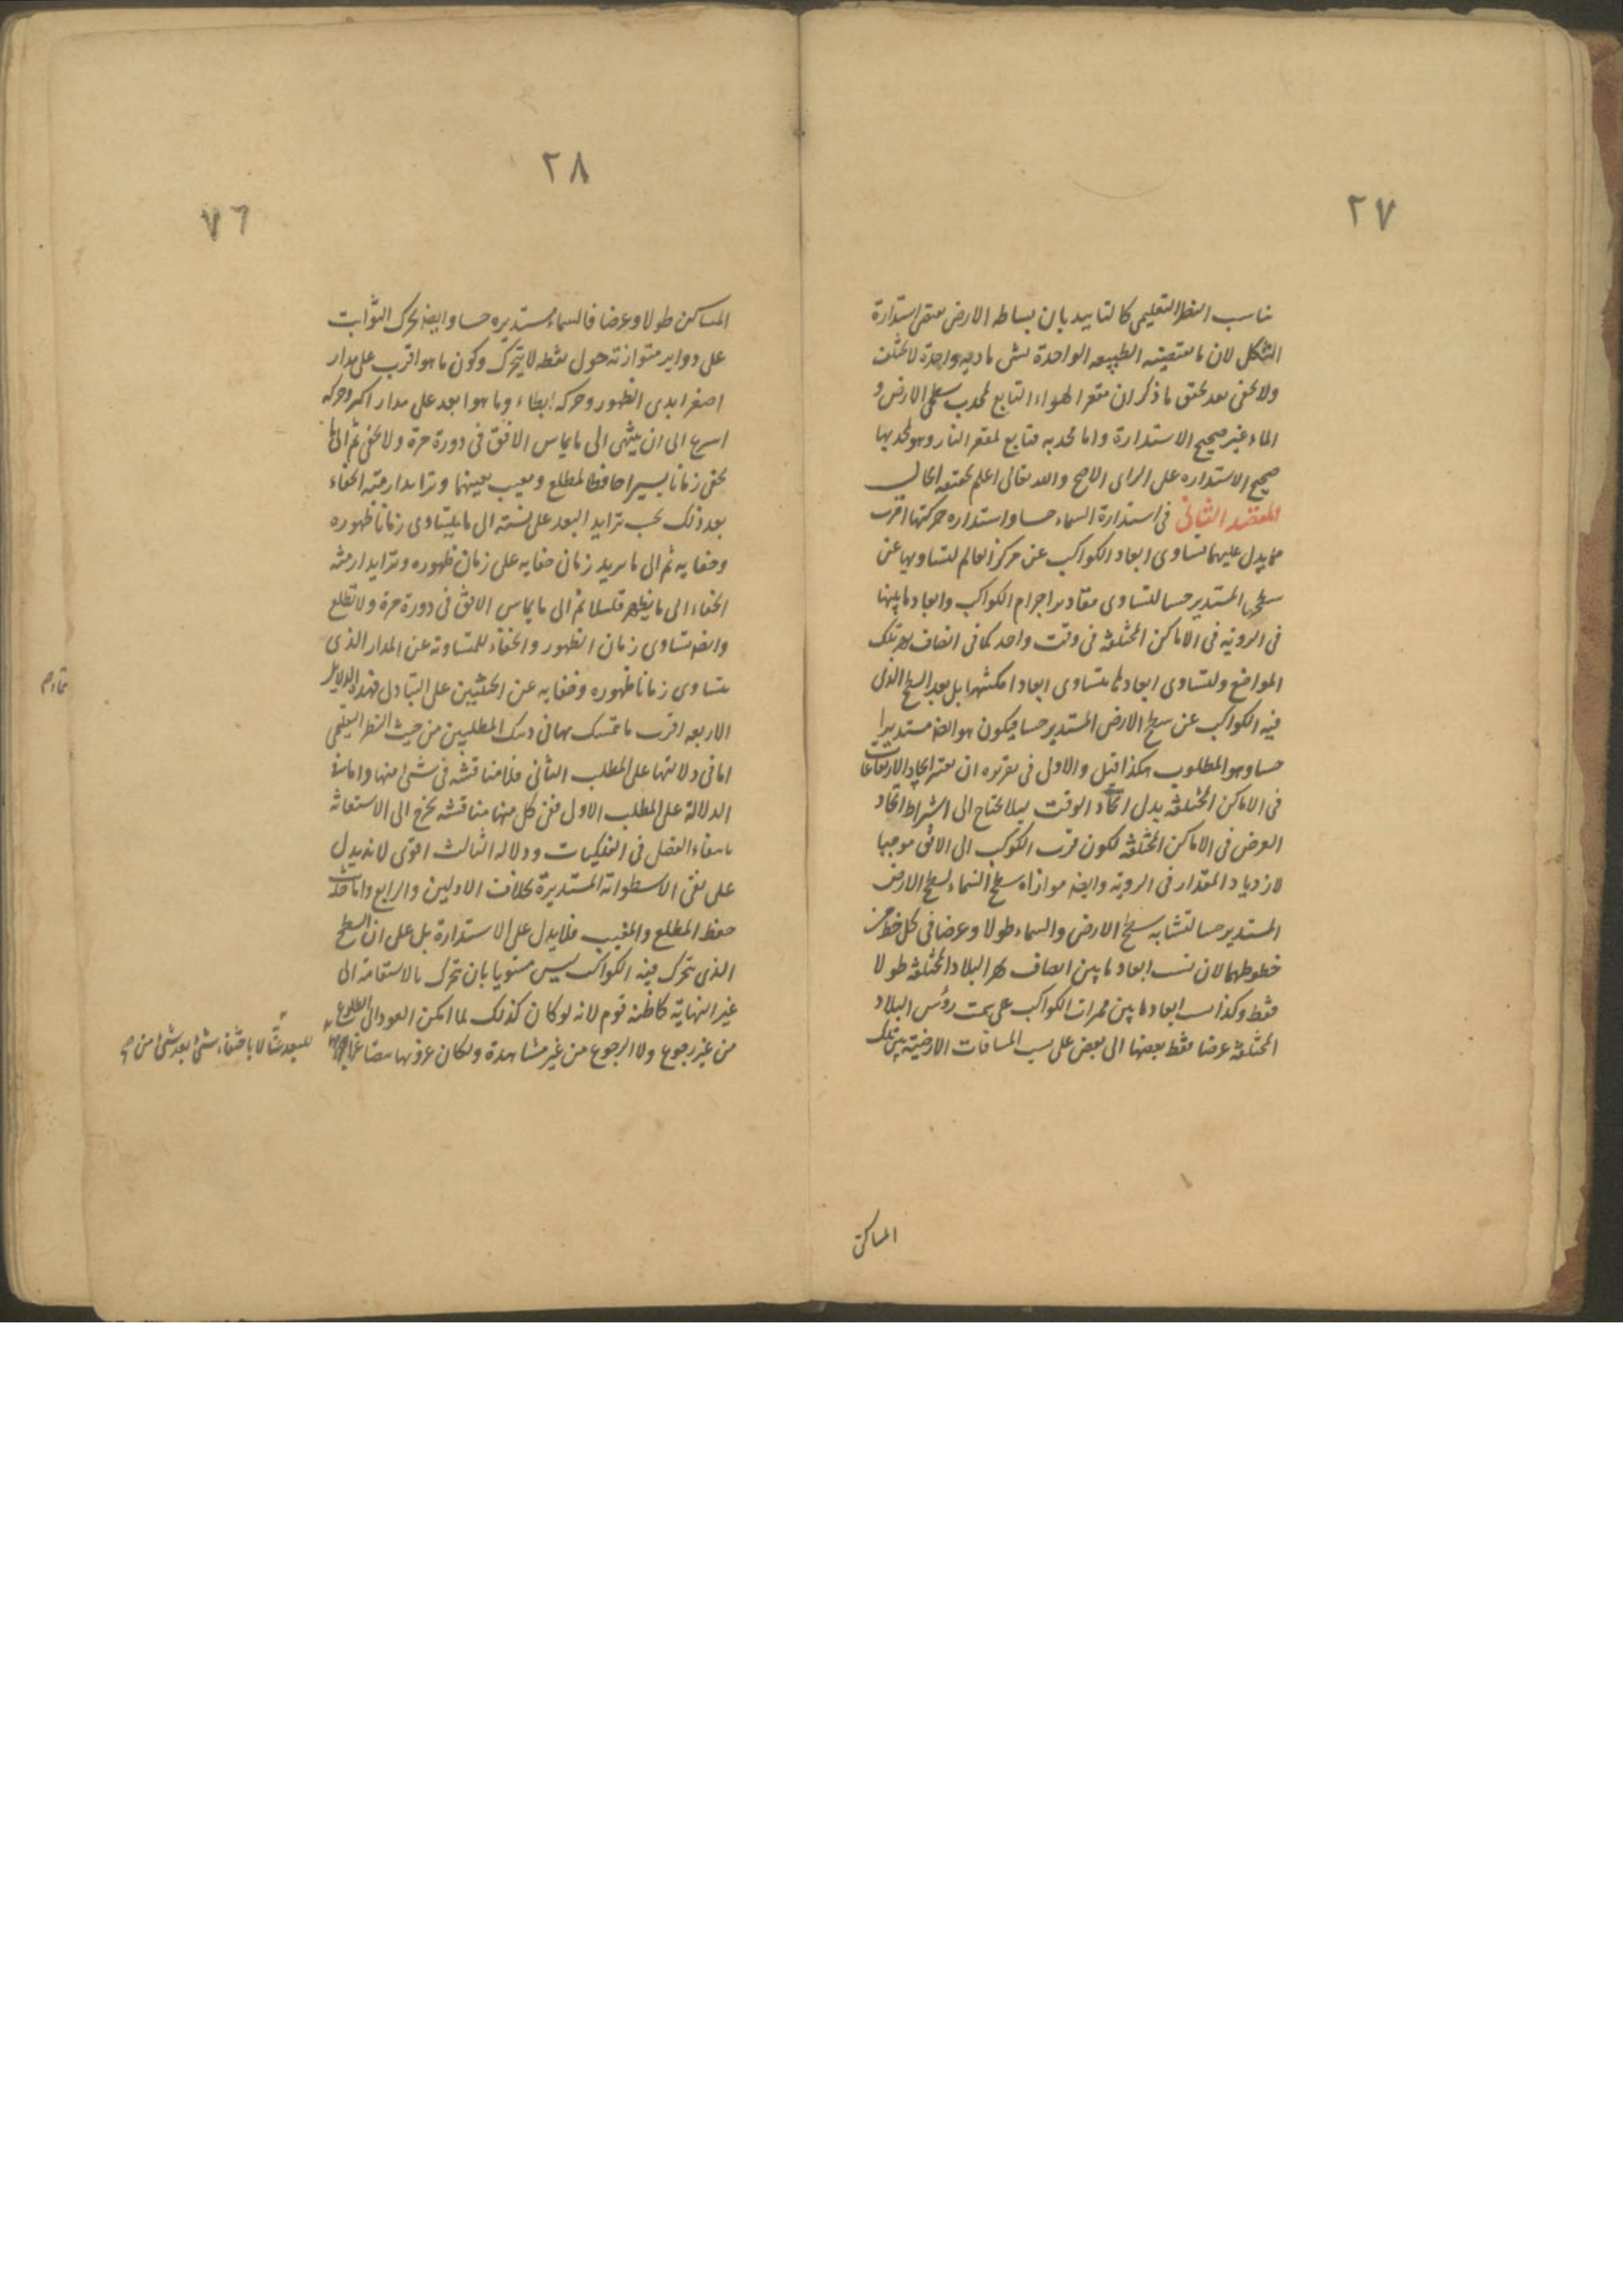 ٢٧
يناسب النظر التعليمى كالتاييد بان بساطه الارض تقتضى استدارة
الشكل لان ما تقتضيه الطبيعه الواحدة لشى مادته واحدة لا تختلف
ولا يخفى بعد تحقق ما ذكر ان مقعر الهواء التابع لمحدب سطحى الارض و
الماء غير صحيح الاستدارة واما محدبه فتابع لمقعر النار وهو كمحدبها
صحيح الاستداره على الراى الاصح والله تعالى اعلم بحقيقه الحال
المقصد الثانى فى استدارة السماء حسا واستداره حركتها اقرب
ما يدل عليهما تساوى ابعاد الكواكب عن مركز العالم لتساويها عن
سطحها المستدير حسا لتساوى مقادير اجرام الكواكب وابعاد ما بينها
فى الروية فى الاماكن المختلفة فى وقت واحد كما فى انصاف نهر تلك
المواضع ولتساوى ابعاد ما يتساوى ابعاد امكنتها بل بعد السطح الذى
فيه الكواكب عن سطح الارض المستدير حسا فيكون هو ايضا مستديرا
حسا وهو المطلوب هكذا قيل والاولى فى تقريره ان يعتبر اتحاد الارتفاعات
فى الاماكن المختلفة بدل اتحاد الوقت لئلا يحتاج الى اشتراط اتحاد
العرض فى الاماكن المختلفة لكون قرب الكوكب الى الافق موجبا
لازدياد المقدار فى الروية وايضا موازاه سطح السماء لسطح الارض
المستدير حسا لتشابه سطح الارض والسماء طولا وعرضا فى كل خط من
خطوطهما لان نسب ابعاد ما بين انصاف نهر البلاد المختلفة طولا
فقط وكذا نسب ابعاد ما بين ممرات الكواكب على سمت رؤس البلاد
المختلفة عرضا فقط بعضها الى بعض على نسب المسافات الارضية بين تلك
المساكن
٢٨
٧٦
المساكن طولا وعرضا فالسماء مستديره حسا وايضا تحرك الثوابت
على دواير متوازنة حول نقطه لا يتحرك وكون ما هو اقرب على مدار
اصغر ابدى الظهور وحركه ابطاء وما هو ابعد على مدار اكبر وحركه
اسرع الى ان ينتهى الى ما يماس الافق فى دورة مرة ولا يخفى ثم الى ما
يخفى زمانا يسيرا حافظا لمطلع ومغيب بعينهما وتزايد ازمنة الخفاء
بعد ذلك بحسب تزايد البعد على نسبته الى ما يتساوى زمانا ظهوره
وخفايه ثم الى ما يزيد زمان خفايه على زمان ظهوره وتزايد ازمنة
الخفاء الى ما يظهر قليلا ثم الى ما يماس الافق فى دورة مرة ولا تطلع
وايضا تساوى زمان الظهور والخفاء للمتساوية عن المدار الذى
يتساوى زمانا ظهوره وخفايه عن الجنبتين على التبادل فهذه الدلايل
الاربعه اقرب ما يتمسك بها فى ذينك المطلبين من حيث النظر التعليمى
اما فى دلالتها على المطلب الثانى فلا مناقشة فى شئ منها واما فى
الدلالة على المطلب الاول ففى كل منها مناقشة يحوج الى الاستعانة
بانتفاء الفصل فى الفلكيات ودلاله الثالث اقوى لانه يدل
على نفى الاسطوانة المستديرة بخلاف الاولين والرابع واما
حفظ المطلع والمغيب فلا يدل على الاستدارة بل على ان السطح
الذى يتحرك فيه الكواكب ليس مستويا بان تتحرك بالاستقامة الى
غير النهاية كما ظنه قوم لانه لو كان كذلك لما امكن العود الى الطلوع
من غير رجوع ولا الرجوع من غير مشاهدة ولكان غروبها
للبعد عنا لا باختفاء شئ بعد شئ من